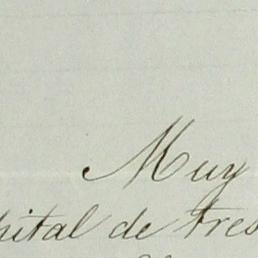 Muy
pital de tres